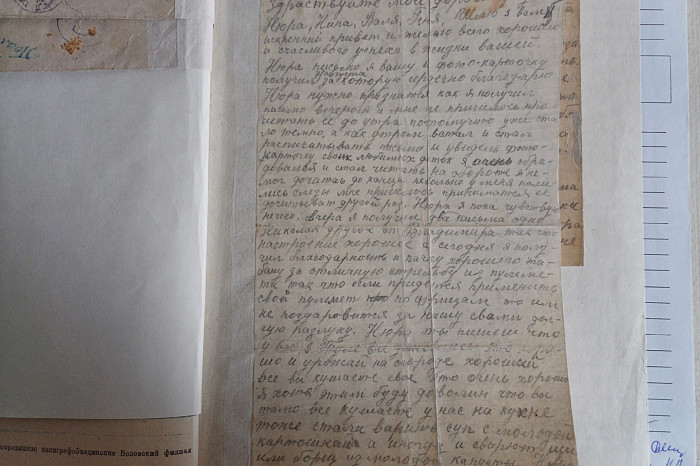 Здраствуйте мои дорог
Нюра, Нина, Валя, Рэня, Шлю я Вам
искренний привет и желаю всего хороше
и счастливого успеха в жизни вашей
Нюра письмо я вашу и фото-карточку
получил 7 августа за которую сердечно благодарю
Нюра нужно признатся как я получил
письмо вечером и мне не пришлось про
читать ее до утра потому что уже ста
ло темно, а как утром встал и стал
распечатывать письмо и увидель фото-
карточку своих любимых деток я очень обра
довался и стал читать на обороте я не-
мог дочитать до конца невольно у меня поли
лись слезы мне пришлось
дочитыват другой раз. Нюра я пока чувствую
ничего, вчера я получил два письма одно
Николая другое от Владимира так что
настроение хорошее а сегодня я полу-
чил благодарность и пачку хорошего та-
баку за отличную стрельбу из пулеме-
та так что если придется применить
свой пулемет по фрицам то им
не поздаровится за нашу свами дол-
гую разлуку. Нюра ты пишеш что
у вас в
шо и урожай на огороде хороший
все вы кушаете свое это очень хорошо
я хотя этим буду доволин что вы
тамо все кушаете у нас на кухне
тоже стали варить суп с молодой
картошкай а иногда и сварют щи
или борщ из молодой капусты
городицкое полиграфобъединение Воловский филиал